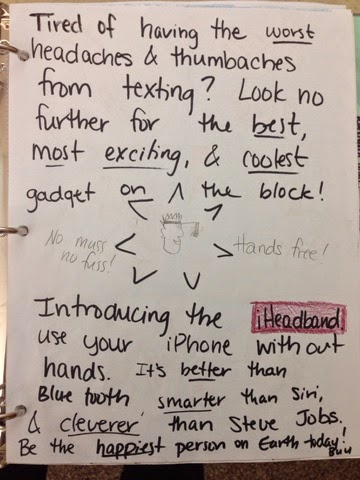 Tired of having the worst
headaches & thumbaches
from texting? Look no
further for the best,
most exciting, & coolest
gadget on the block!
No muss
no fuss!
Hands free!
Introducing the iHeadband
use your iPhone without
hands. It's better than
Bluetooth smarter than Siri,
& cleverer than Steve Jobs.
Be the happiest person on Earth today!